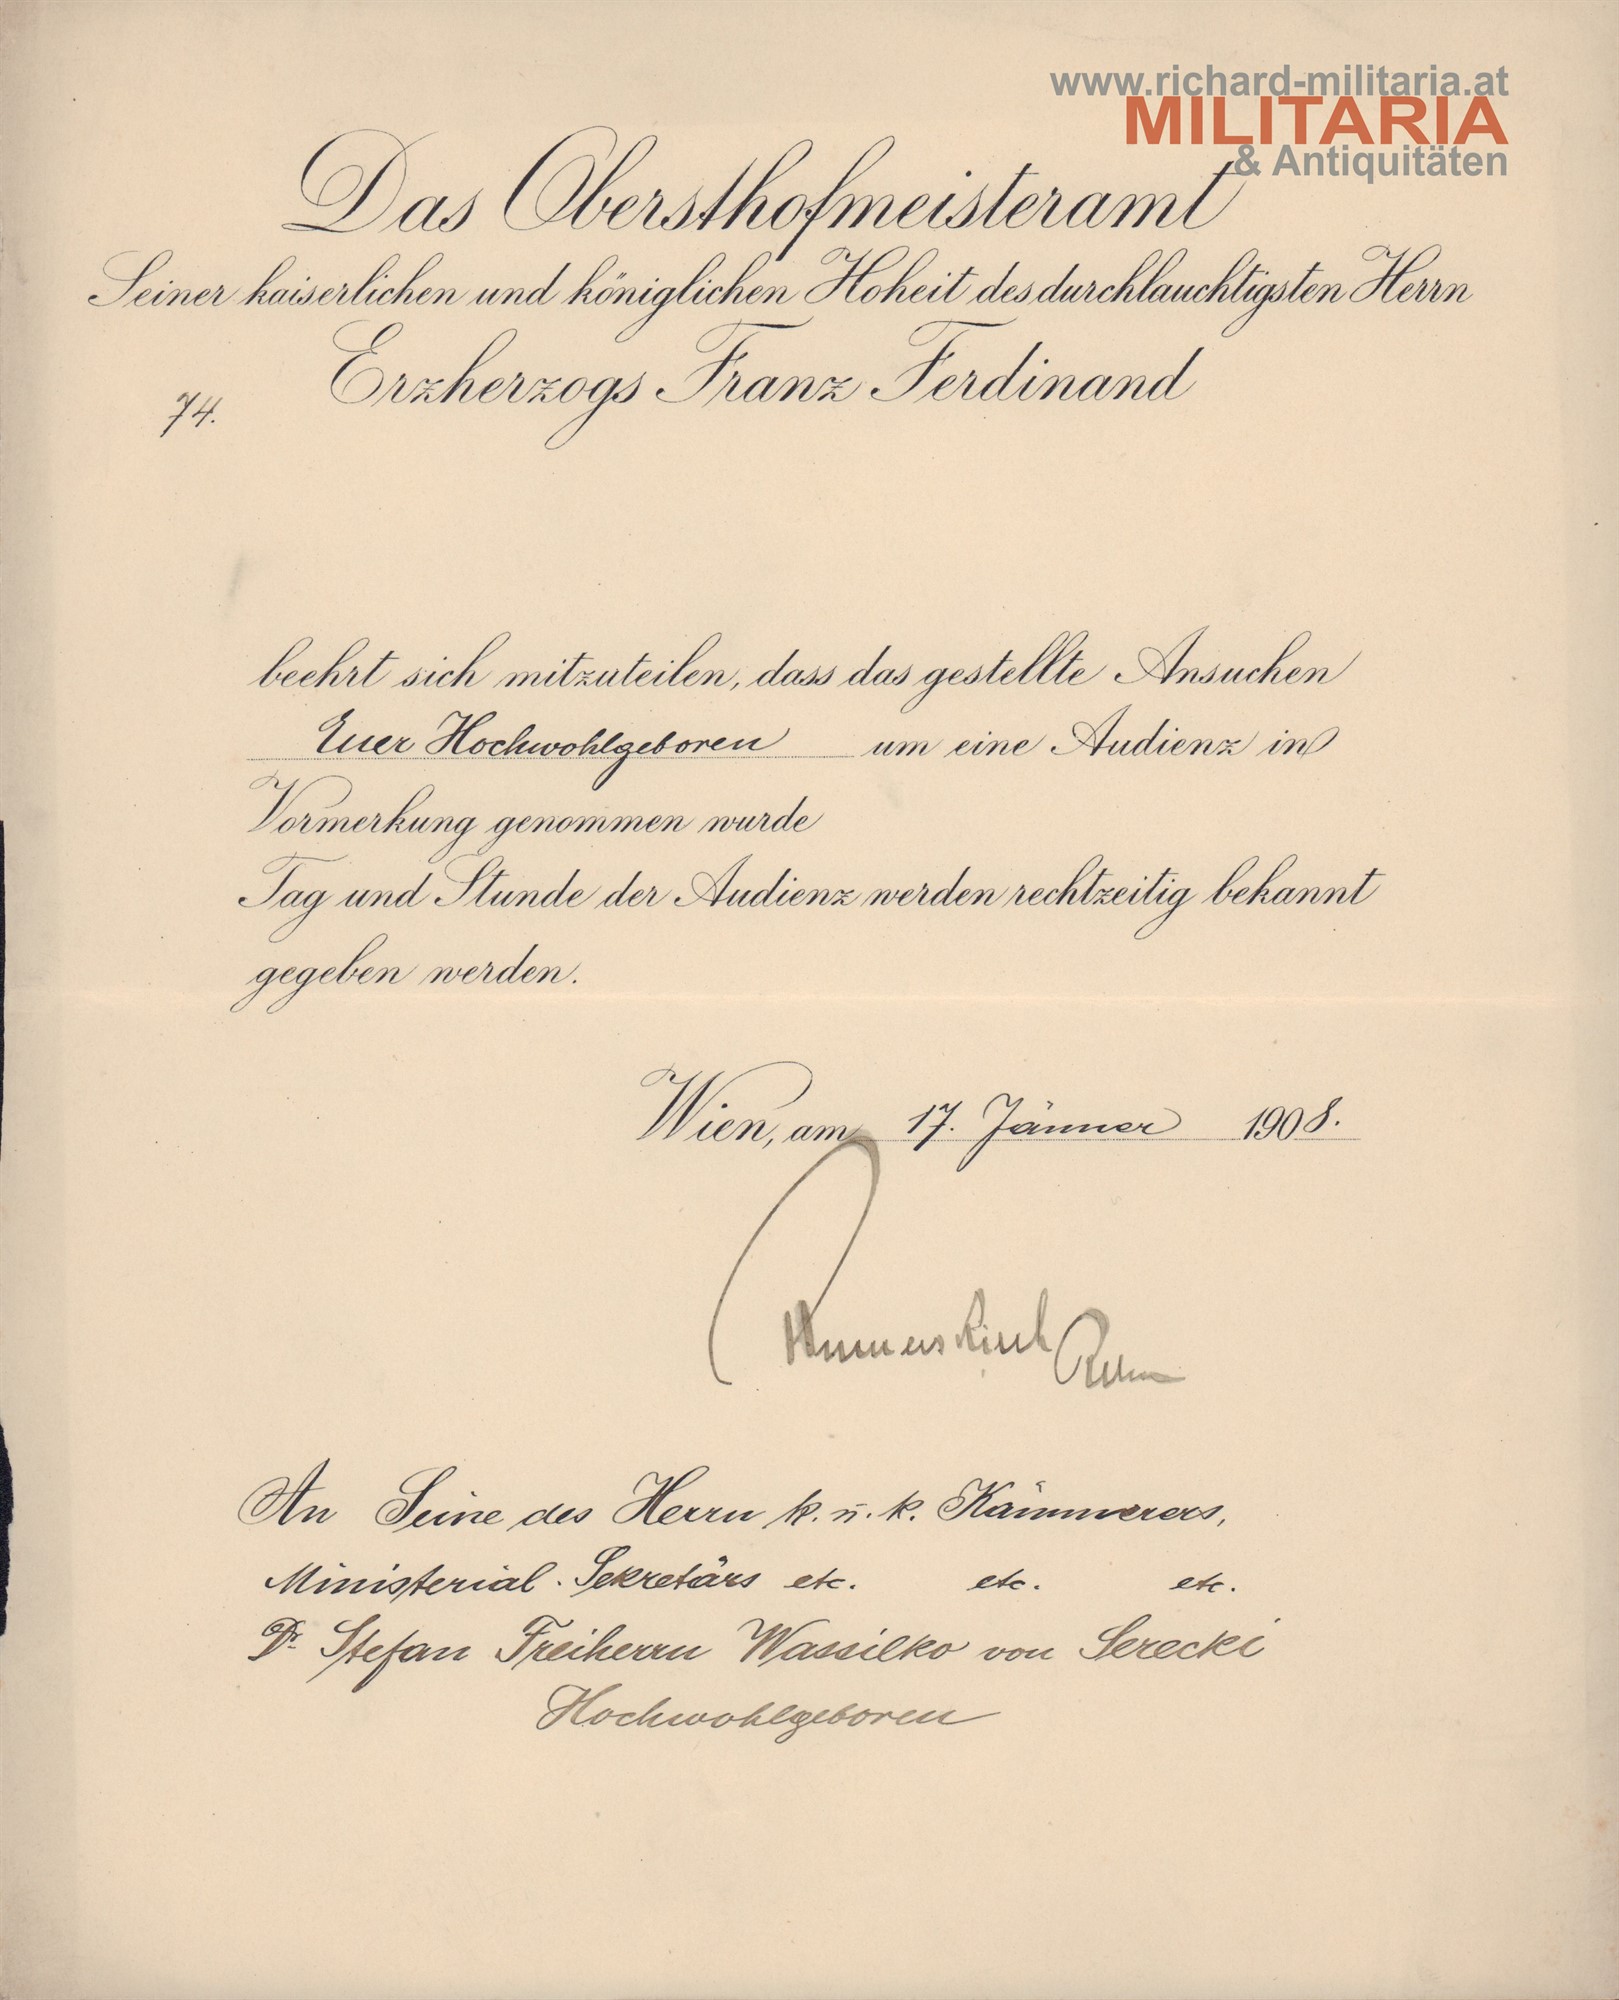 www.richard-militaria.at
MILITARIA
& Antiquitäten
Das Obersthofmeisteramt
Seiner kaiserlichen und königlichen Hoheit des durchlauchtigsten Herrn
Erzherzogs Franz Ferdinand
74.
beehrt sich mitzuteilen, dass das gestellte Ansuchen
Euer Hochwohlgeboren um eine Audienz in
Vormerkung genommen wurde
Tag und Stunde der Audienz werden rechtzeitig bekannt
gegeben werden.
Wien, am 17. Jänner 1908.
An Seine des Herrn k. u. k. Kämmerers,
Ministerial-Sekretärs etc. etc. etc.
Dr. Stefan Freiherrn Wassilko von Serecki
Hochwohlgeboren